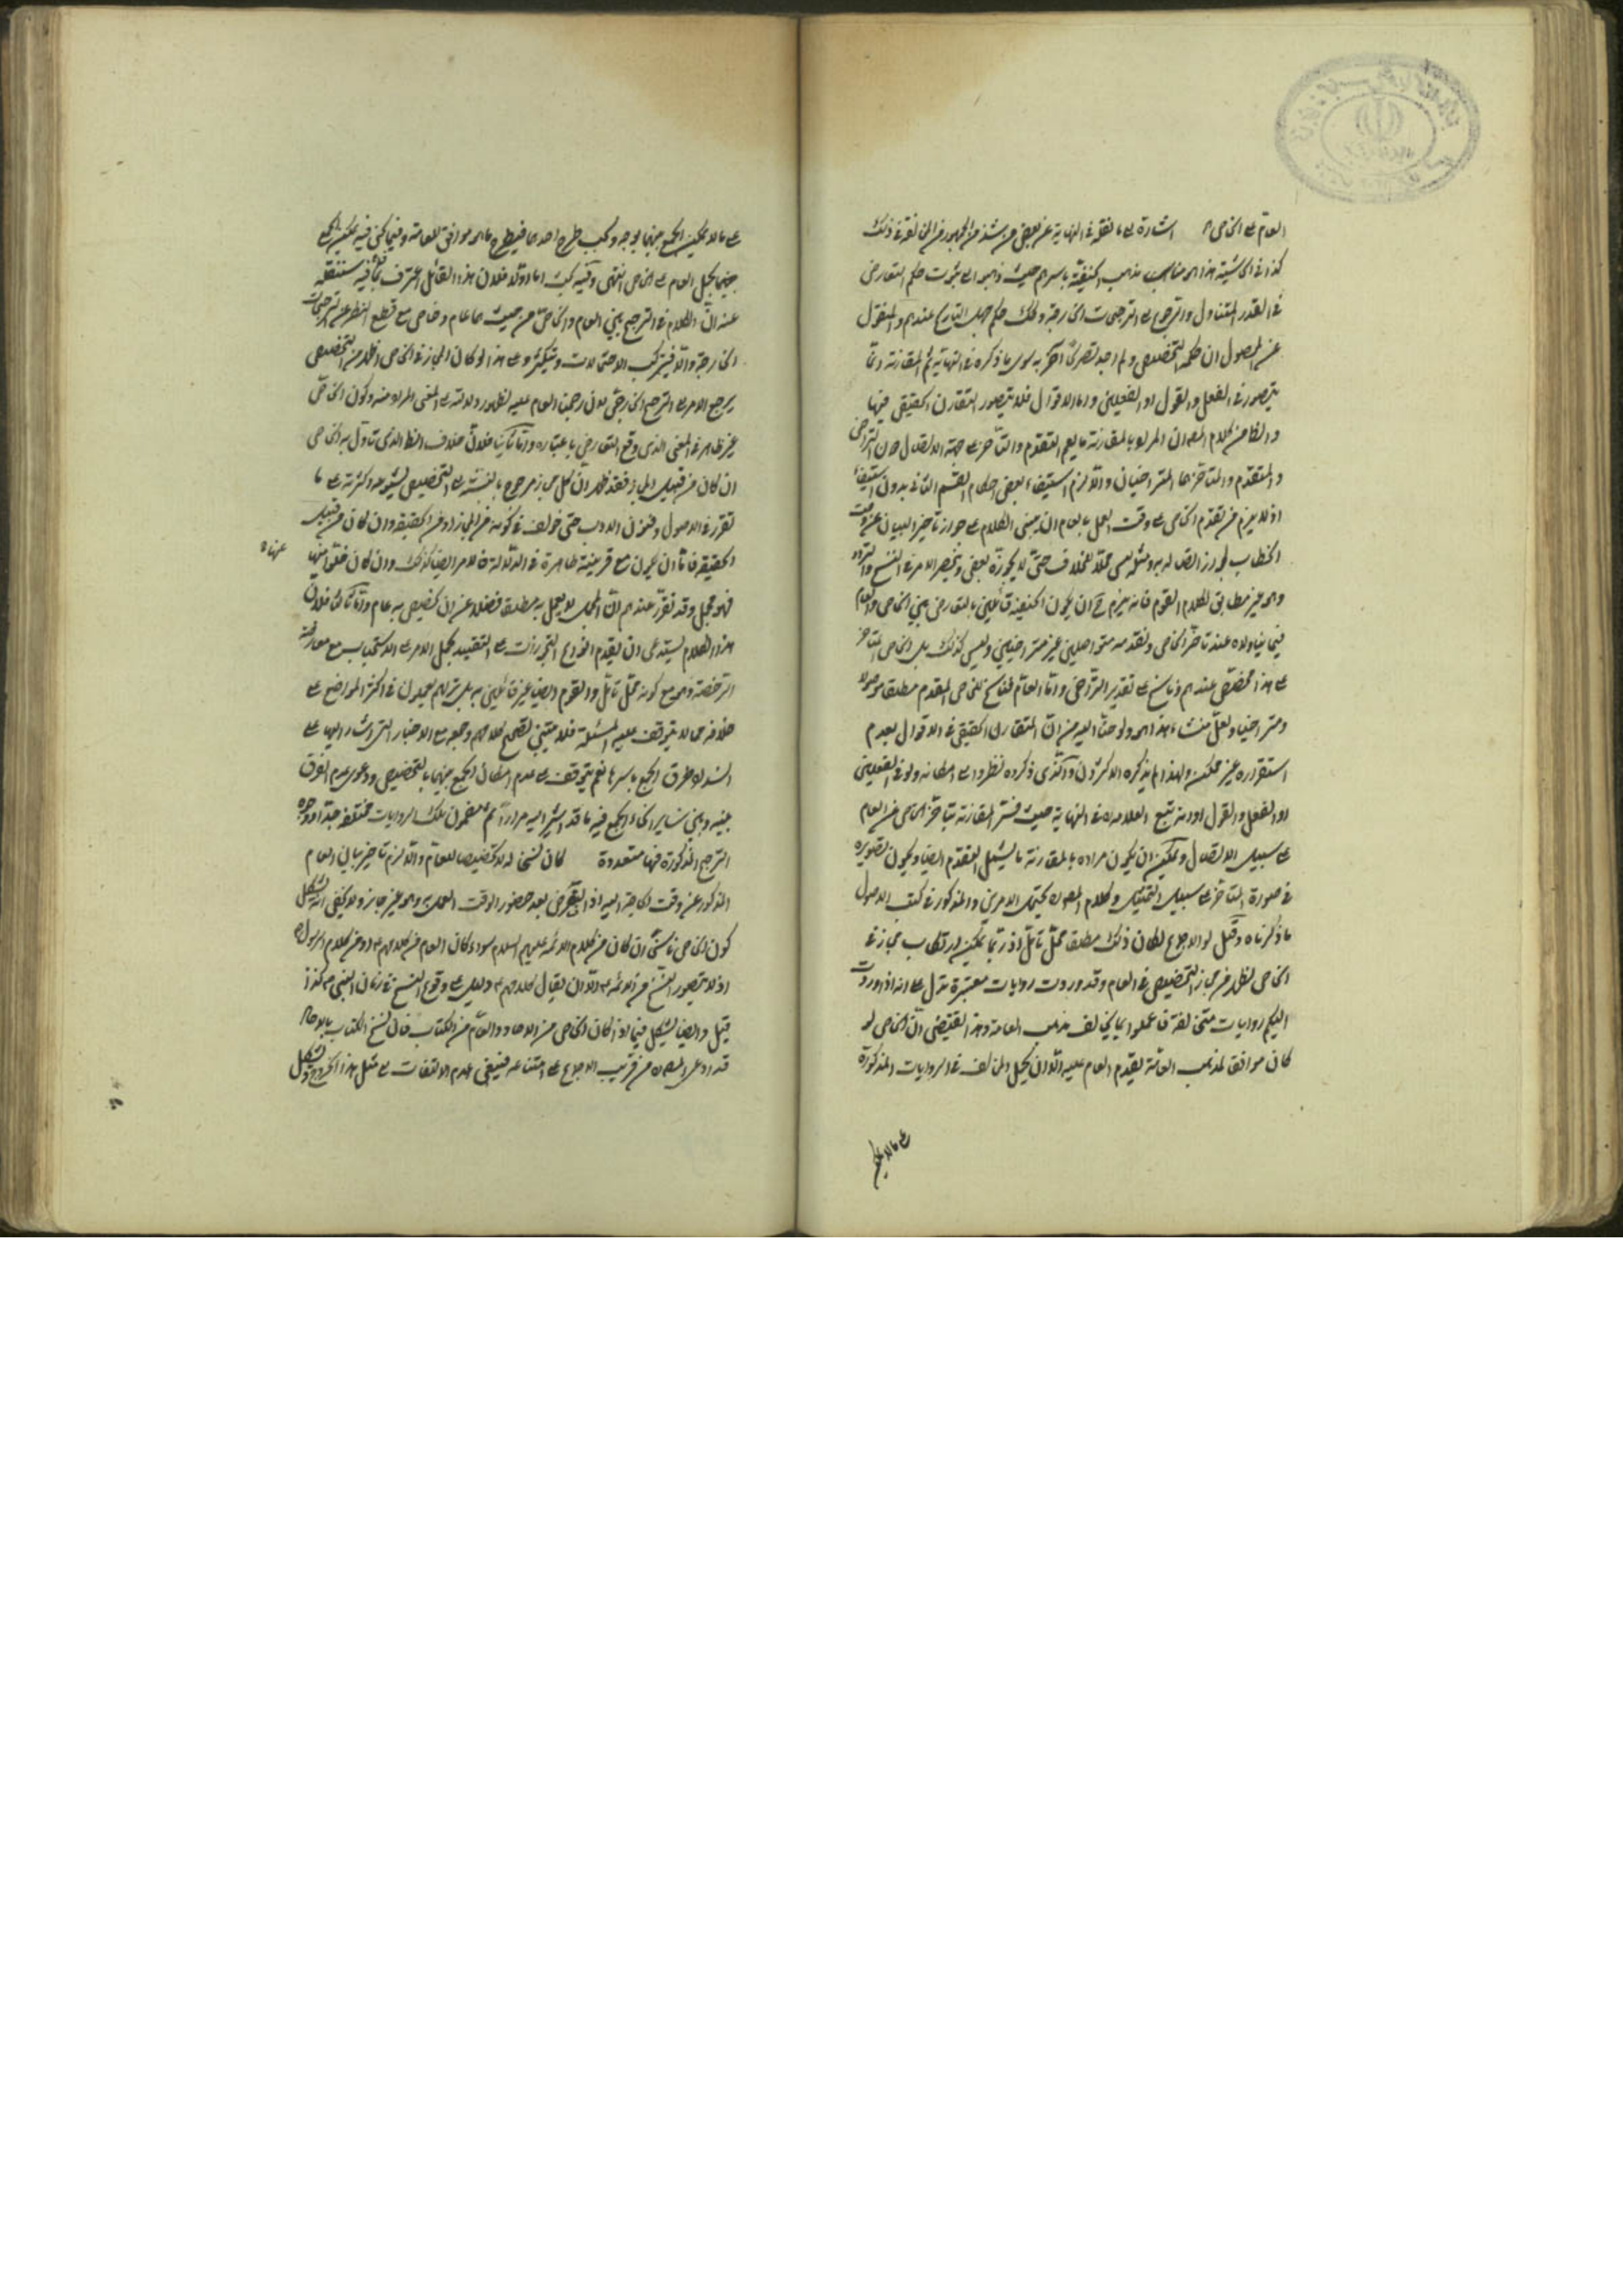 العام على الخاص اشارة الى ما نقله في النهاية عن بعض من شذ من الجمهور من المخالفة في ذلك
كذا في الحاشية هذا هو مناسب مذهب الحنفية باسرهم حيث ذهبوا الى ثبوت حكم التعارض
في القدر المتناول والرجوع الى الترجيحات الخارجة وذلك حكم جهل التاريخ عندهم والمنقول
عن المحصول ان حكمه التخصيص ولم اجد تصريحا آخر به سوى ما ذكره في النهاية ثم المقارنة انما
يتصور في الفعل والقول او الفعلين واما الاقوال فلا يتصور التقارن الحقيقي فيها
والظ من كلام المص ان المراد بالمقارنة ما يعم التقدم والتأخر على جهة الاتصال دون التراخي
والمتقدم والمتأخر هما المتراخيان والا لزم استيفاء بعض احكام القسم الثاني بدون استيفاء
اذ لا يلزم من تقدم الخاص على وقت العمل بالعام ان يبنى الكلام على جواز تاخير البيان عن وقت
الخطاب لجواز اتصاله به ومثله ليس محلا للخلاف حتى لا يجوزه بعض وينحصر الامر في النسخ والرد
وهو غير مطابق لكلام القوم فانه يلزم ح ان يكون الحنفية قائلين بالتعارض بين الخاص والعام
فيما يتناولاه عند تاخر الخاص وتقدمه متواصلين غير متراخيين وليس كذلك بل الخاص المتاخر
على هذا مخصص عندهم وناسخ على تقدير التراخي واما العام فناسخ للخاص المتقدم مطلقا موصولا
ومتراخيا ولعل منشاء هذا هو ما لوحنا اليه من ان التقارن الحقيقي في الاقوال لعدم
استقراره غير ممكن ولهذا لم يذكره الاكثرون والذي ذكره نظر الى امكانه ولو في الفعلين
او الفعل والقول او من تتبع العلامة في النهاية حيث فسر المقارنة بتأخر الخاص عن العام
على سبيل الاتصال ويمكن ان يكون مراده بالمقارنة ما يشمل التقدم ايضا ويكون تصويره
في صورة المتاخر على سبيل التمثيل وكلام المص يحتمل الامرين والمذكور في كتب الاصول
ما ذكرناه وقيل لو الاجماع لكان ذلك مطلقا محل تامل اذ ربما يمكن ارتكاب مجاز في
الخاص اظهر من مجاز التخصيص في العام وقد وردت روايات معتبرة تدل على انه اذا وردت
اليكم روايات متخالفة فاعملوا بما يخالف مذهب العامة وهذا يقتضي ان الخاص لو
كان موافقا لمذهب العامة يقدم العام عليه الا ان يحمل المخالف في الروايات المذكورة
على ما لا يمكن
على ما لا يمكن الجمع بينهما بوجه ويجب طرح احدهما فيطرح ما هو موافق للعامة وفيما نحن فيه يمكن الجمع
بينهما بحمل العام على الخاص انتهى وفيه بحث اما اولا فلان هذا القائل اعترف فيما سننقله
عنه ان الكلام في الترجيح بين العام والخاص من حيث هما عام وخاص مع قطع النظر عن المرجحات
الخارجة والا فيتركب الاحتمالات وتتكثر وعلى هذا لو كان المجاز في الخاص اظهر من التخصيص
يرجع الامر الى الترجيح الخارجي لان رجحان العام عليه لظهور دلالته على المعنى المراد منه وكون الخاص
غير ظاهر في المعنى الذي وقع التعارض باعتباره واما ثانيا فلان خلاف الظ الذي تناول به الخاص
ان كان من قبيل المجاز فقد ظهر ان كل مجاز مرجوح بالنسبة الى التخصيص لشيوعه وكثرته على ما
تقرر في الاصول وفنون الادب حتى خولف في كونه من المجاز او من الحقيقة وان كان من قبيل
الحقيقة فاما ان يكون مع قرينة ظاهرة في الدلالة فالامر ايضا كذلك وان كان خلوا منها
فهو مجمل وقد تقرر عندهم ان المجمل لا يعمل به مطلقا فضلا عن ان يخصص به عام واما ثالثا فلان
هذا الكلام يستدعي ان يقدم انواع التجوزات على التقييد بحمل الامر على الاستحباب مع معارضة
الرخصة وهو مع كونه محل تامل والقوم ايضا غير قائلين به بل تراهم يعملون في اكثر المواضع على
خلافه مما لا يتوقف عليه المسئلة فلا يبتنى تصحيح كلامهم وجمعهم الاخبار التي اشار اليها على
استدلاله طرق الجمع باسرها نعم يتوقف على عدم امكان الجمع بينهما بالتخصيص ودعوى عدم الفرق
بينه وبين ساير انحاء الجمع فيه ما قد اشير اليه مرارا ثم مضمون تلك الروايات مختلفة جدا ووجوه
الترجيح المذكورة فيها متعددة كان نسخا له لا تخصيصا للعام والا لزم تاخير بيان العام
المذكور عن وقت الحاجة اليه اذ الفرض بعد حضور الوقت العمل به وهو غير جائز ولا يخفى انه يشكل
كون الخاص ناسخا ان كان من كلام الائمة عليهم السلام سواء كان العام من كلامهم او من كلام الرسول
اذ لا يتصور النسخ من الائمة الا ان يقال كلامهم دليل على وقوع النسخ في زمان النبي ص كذا
قيل وايضا يشكل فيما اذا كان الخاص من الاحاد والعام من الكتاب فان نسخ الكتاب بالاحاد
قد ادعى المص من قريب الاجماع على امتناعه فينبغي عدم الالتفات الى مثل هذا الخبر ويشكل